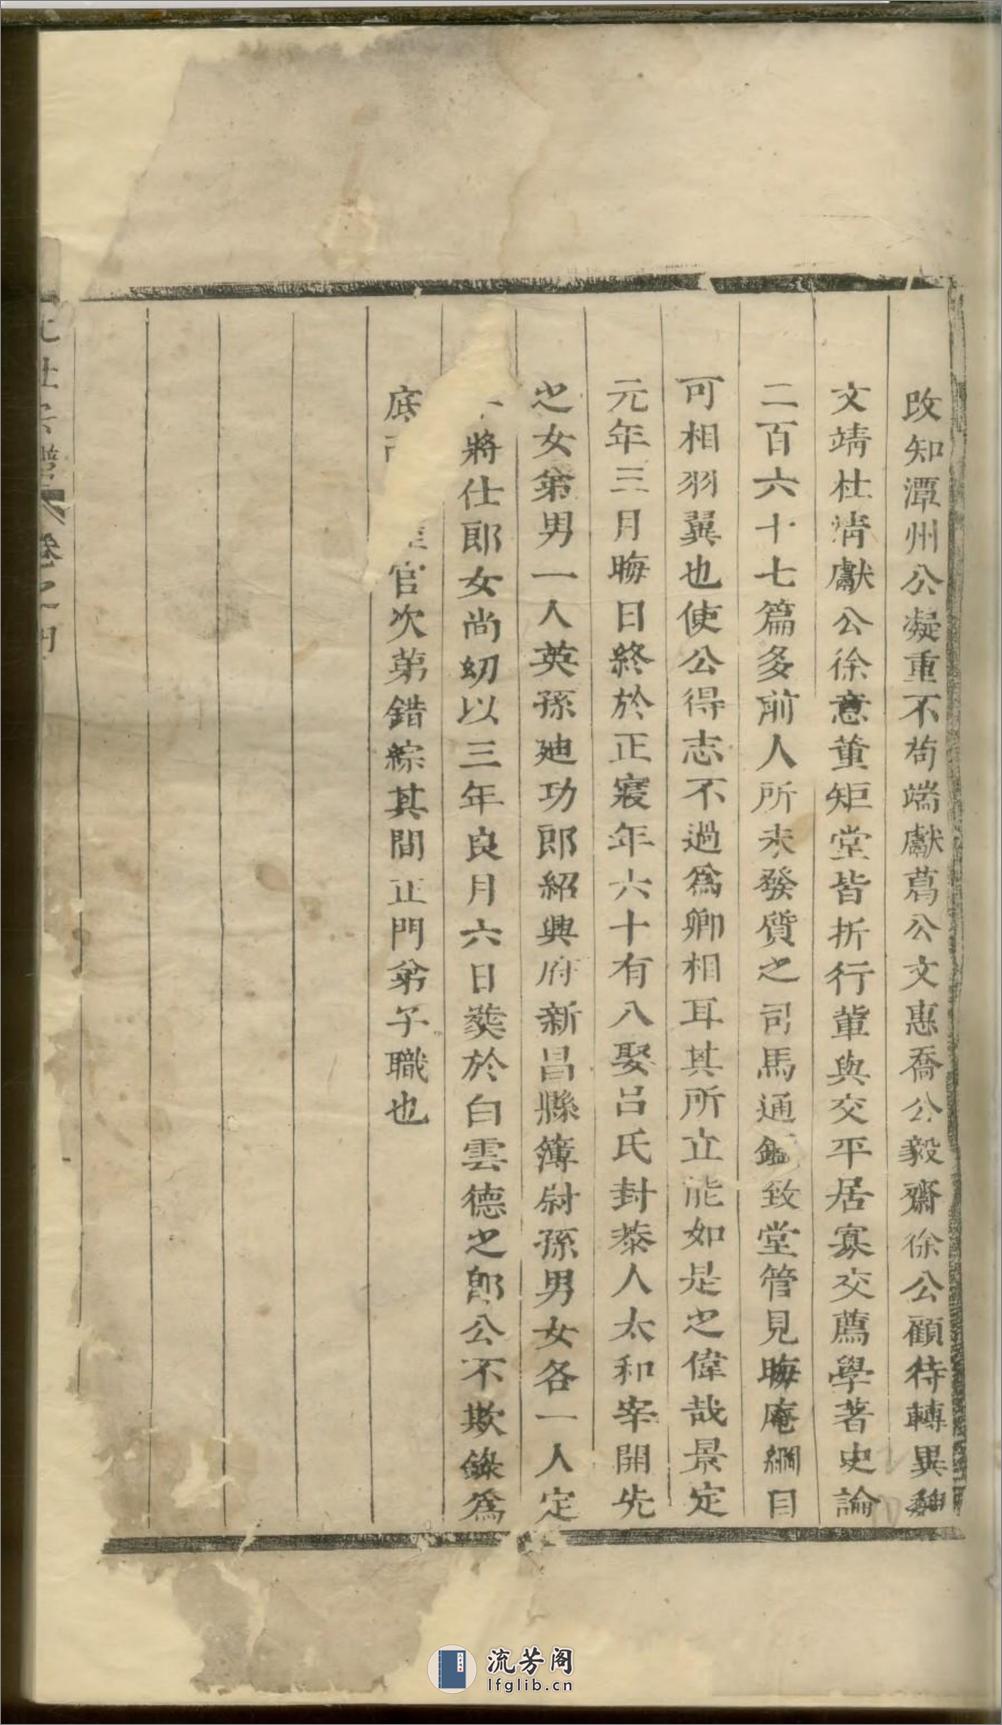 改知潭州公凝重不苟端獻葛公文惠喬公毅齋徐公顧待轉異魏
文靖杜清獻公徐意董矩堂皆折行軰與交平居寡交薦學著史論
二百六十七篇多前人所未發質之司馬通鑑致堂管見晦庵綱目
可相羽翼也使公得志不過爲卿相耳其所立能如是之偉哉景定
元年三月晦日終於正寢年六十有八娶呂氏封恭人太和宰開先
之女弟男一人英孫廸功郎紹興府新昌縣簿尉孫男女各一人定
將仕郎女尚幼以三年良月六日葬於白雲德之郎公不欺錄爲
底官次第錯綜其間正門弟子職也
杜宗譜 卷之
流芳阁
lfglib.cn